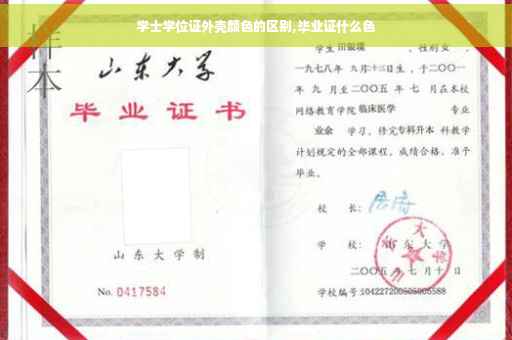 学士学位证外壳颜色的区别,毕业证什么色
样本
山东大学
毕业证书
山东大学制
No. 0417584
学生 田银瑞 ，性别 女 ，
一九七八年 九月十三日生，于二〇〇一
年 九 月至二〇〇五 年 七 月在本校
网络教育学院 临床医学 专业
业余 学习，修完 专科升本 科教学
计划规定的全部课程，成绩合格，准予
毕业。
校 长：
学 校：山东大学
二〇〇五年七月十日
学校编号：104227200505005588